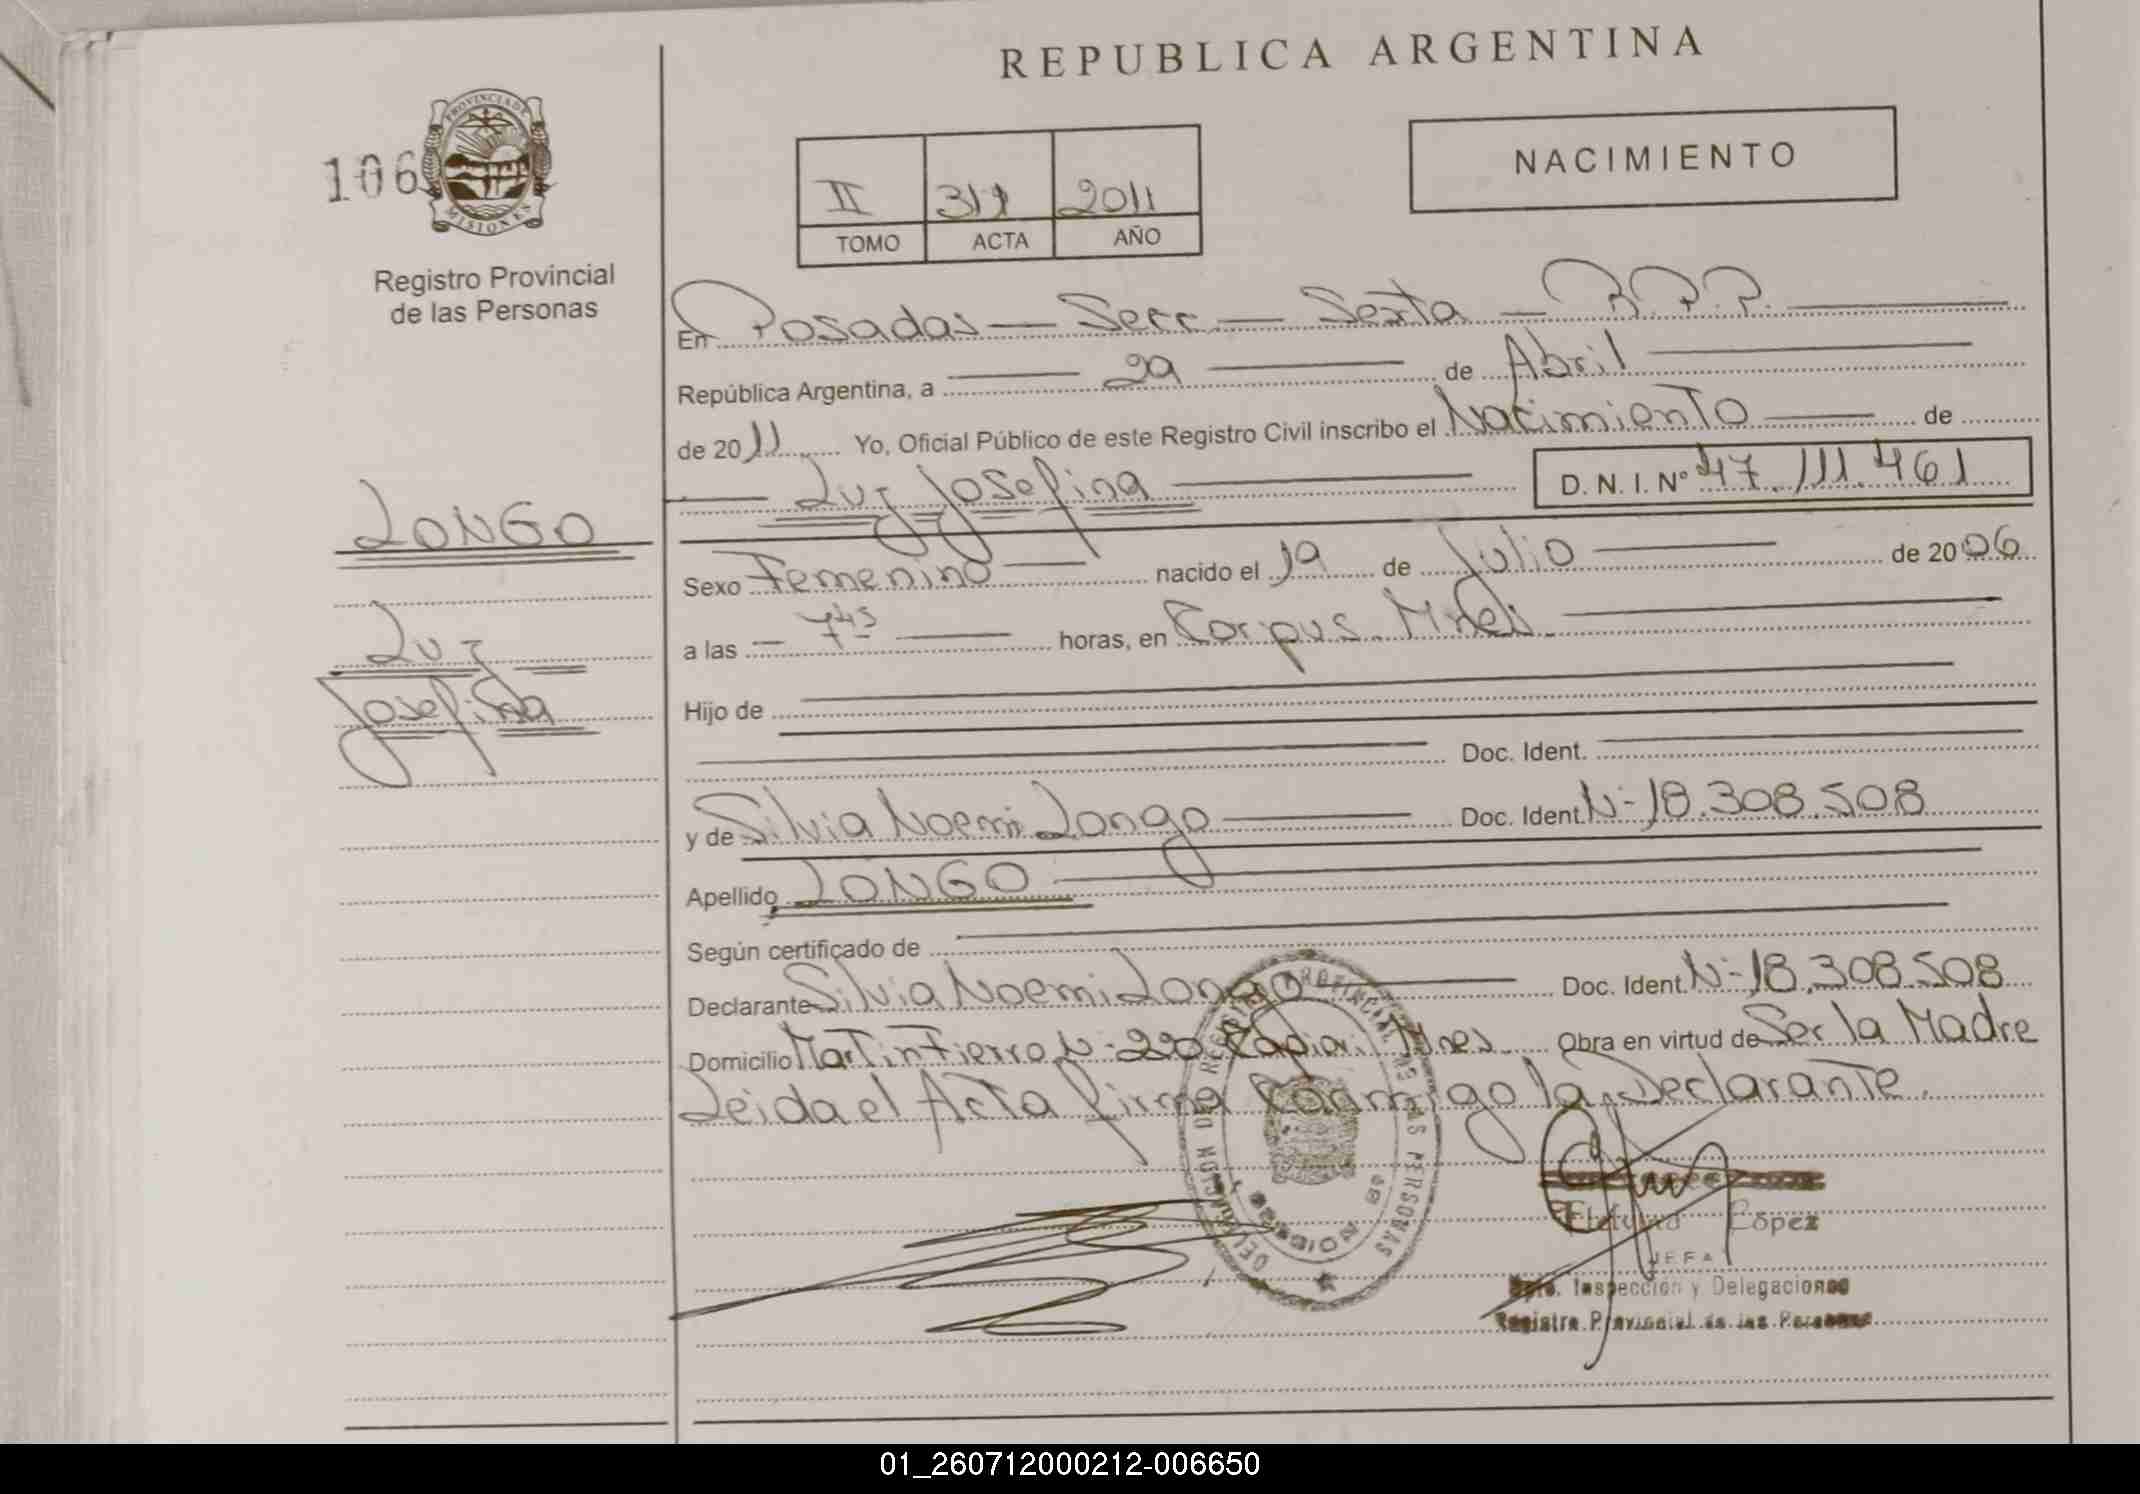 REPUBLICA ARGENTINA
106
PROVINCIA DE
MISIONES
Registro Provincial
de las Personas
II 311 2011
TOMO ACTA AÑO
NACIMIENTO
En Posadas - Secc - Sexta - R.P.P.
República Argentina, a 29 de Abril
de 2011 Yo, Oficial Público de este Registro Civil inscribo el Nacimiento de
Luz Josefina D.N.I. Nº 47.111.461
LONGO
Luz
Josefina
Sexo Femenino nacido el 19 de Julio de 2006
a las - 7 45 horas, en Corpus Mnes
Hijo de
Doc. Ident.
y de Silvia Noemi Longo Doc. Ident. Nº 18.308.508
Apellido LONGO
Según certificado de
Declarante Silvia Noemi Longo Doc. Ident. Nº 18.308.508
Domicilio Martin Fierro Nº Capital Mnes Obra en virtud de Ser la Madre
Leida el Acta firma Conmigo la Declarante.
REGISTRO PROVINCIAL DE LAS PERSONAS
López
JEFA
Dpto. Inspección y Delegaciones
Registro Provincial de las Personas
01_260712000212-006650